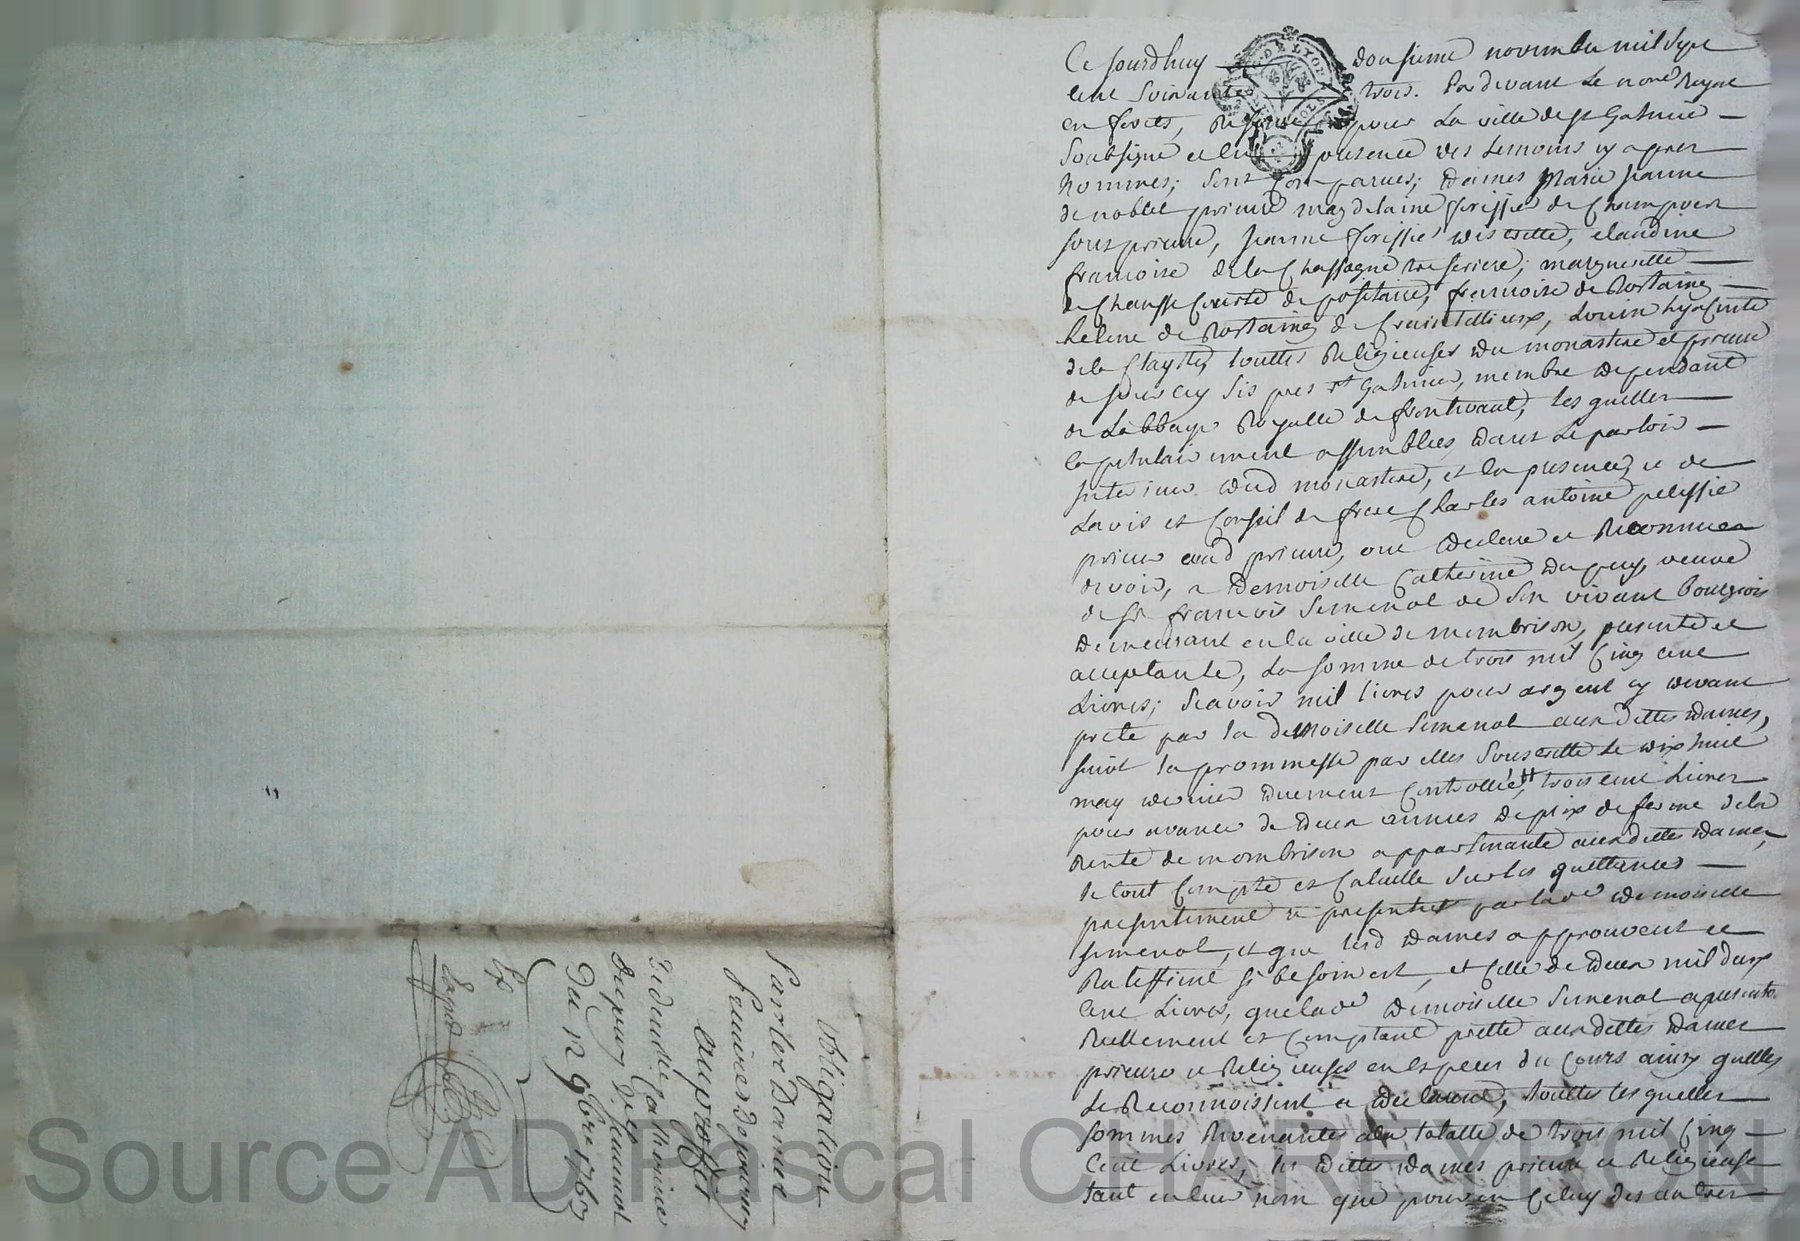 Ce jourdhuy douzieme novembre mil sept
cent soixante trois. Par devant le no.re Royal
en forets, pour la ville de st Galmier
soubsigné et en presence des temoins cy apres
nommes; sont comparues; dames Marie Jeanne
de noblet prieure magdelaine forissie de Champvert
sous prieure, jeanne forissie discrette, claudine
francoise de la Chassagne tresoriere; margueritte
de Chausse Courte depositaire, francoise de Rostaing
helene de Rostaing de louise hyacinte
de la touttes Religieuses du monastere et prieuré
de jourcey sis pres st Galmier, membre dependant
de Labbaye Royalle de frontevaut, les quelles
capitulairement assemblées dans le parloir
interieur dud monastere, et en presence, et de
Lavis et Conseil de frere Charles antoine pelissie
prieur aud prieuré, ont declaré et Reconnu
devoir, a demoiselle Catherine dupuy veuve
de sr francois semenol de son vivant Bourgeois
demeurant en la ville de mombrison, presente et
acceptante, la somme de trois mil Cinq cent
Livres; scavoir mil livres pour argent cy devant
preté par la demoiselle semenol aux dittes dames,
suivt la prommesse par elles souscritte le dix huit
may dernier duement Controllé, trois cent Livres
pour avance de deux annees de prix de ferme de la
Rente de mombrison appartenante aux dittes dames,
le tout Compté et Calculle sur les quittances
presentement Representes par lad.e demoiselle
semenol, et que lesd dames approuvent et
Ratiffient si besoin est, et Celle de deux mil deux
cent Livres, que lad.e demoiselle semenol a presente
Reellement et Comptant pretté aux dittes dames
prieure et Religieuses en especes du Cours ainsy quelles
Le Reconnoissent et declarent, touttes les quelles
sommes Revenantes a la totalle de trois mil Cinq
Cent Livres, les dittes dames prieure et Religieuse
tant en leur nom que pour en Celuy des autres
Obligation
par les Dames
prieures De jourcey
au proffit
de demlle Catherine
dupuy Ve semenol
Du 12 9bre 1763
Source AD Pascal CHAREYRON